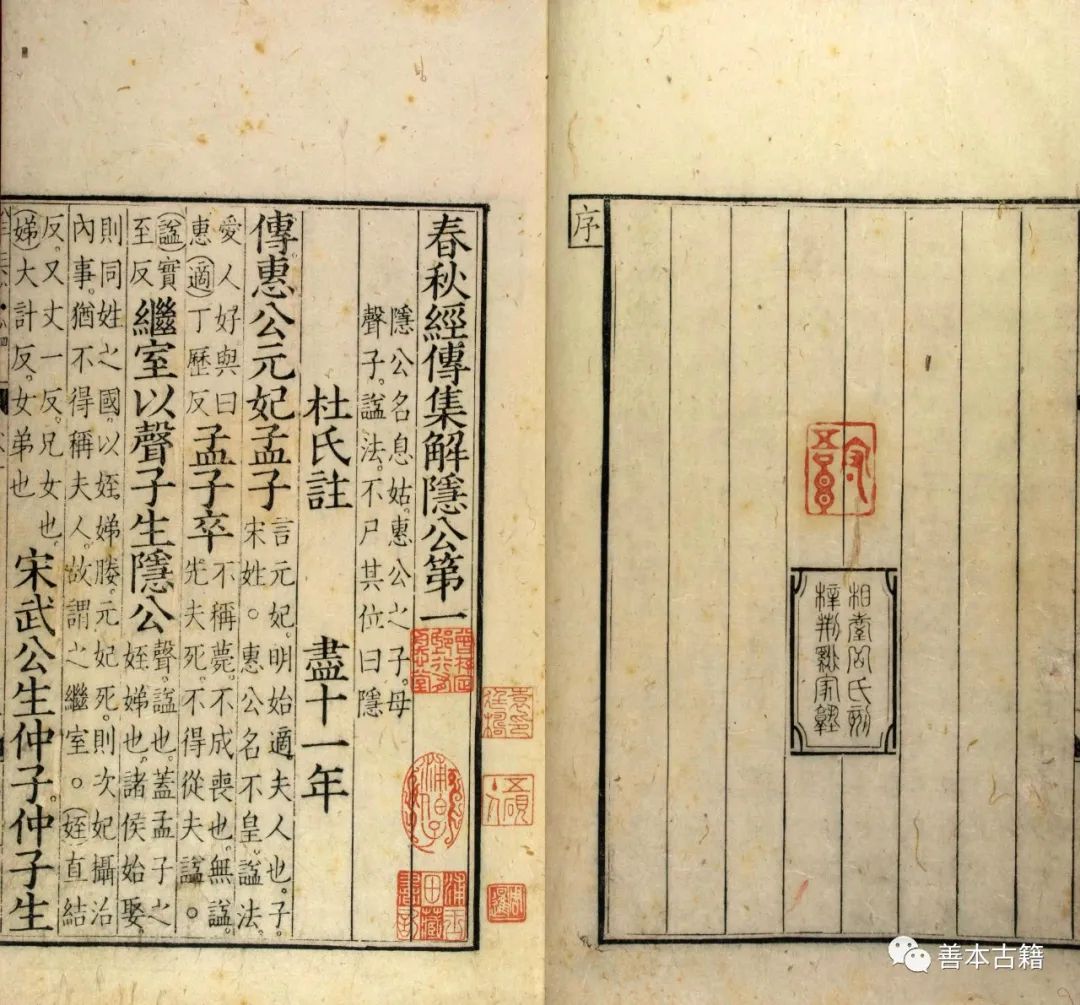 序
相臺岳氏刻
梓荆谿家塾
春秋經傳集解隱公第一
隱公名息姑。惠公之子。母
聲子。謚法。不尸其位曰隱
杜氏註 盡十一年
傳惠公元妃孟子 言元妃。明始適夫人也。子。
宋姓。惠公名不皇。謚法。
愛人好與曰
惠 適丁歷反 孟子卒 不稱薨。不成喪也。無謚。
先夫死。不得從夫謚。
謚實
至反 繼室以聲子生隱公 聲。謚也。蓋孟子之
姪娣也。諸侯始娶。
則同姓之國。以姪娣媵。元妃死。則次妃攝治
內事。猶不得稱夫人。故謂之繼室。姪直結
反。又丈一反。兄女也。
娣大計反。女弟也 宋武公生仲子。仲子生
浦伯子
浦玉田藏書記
袁廷檮印
五硯
周暹
善本古籍